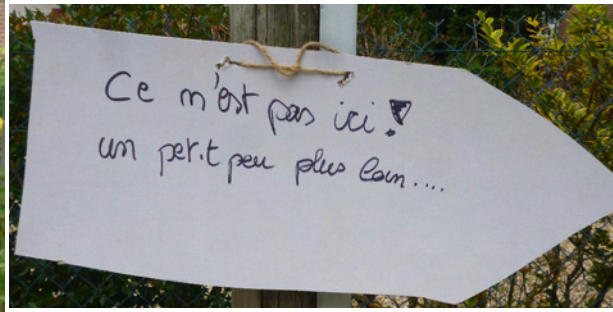 Ce n'est pas ici !
un petit peu plus loin....